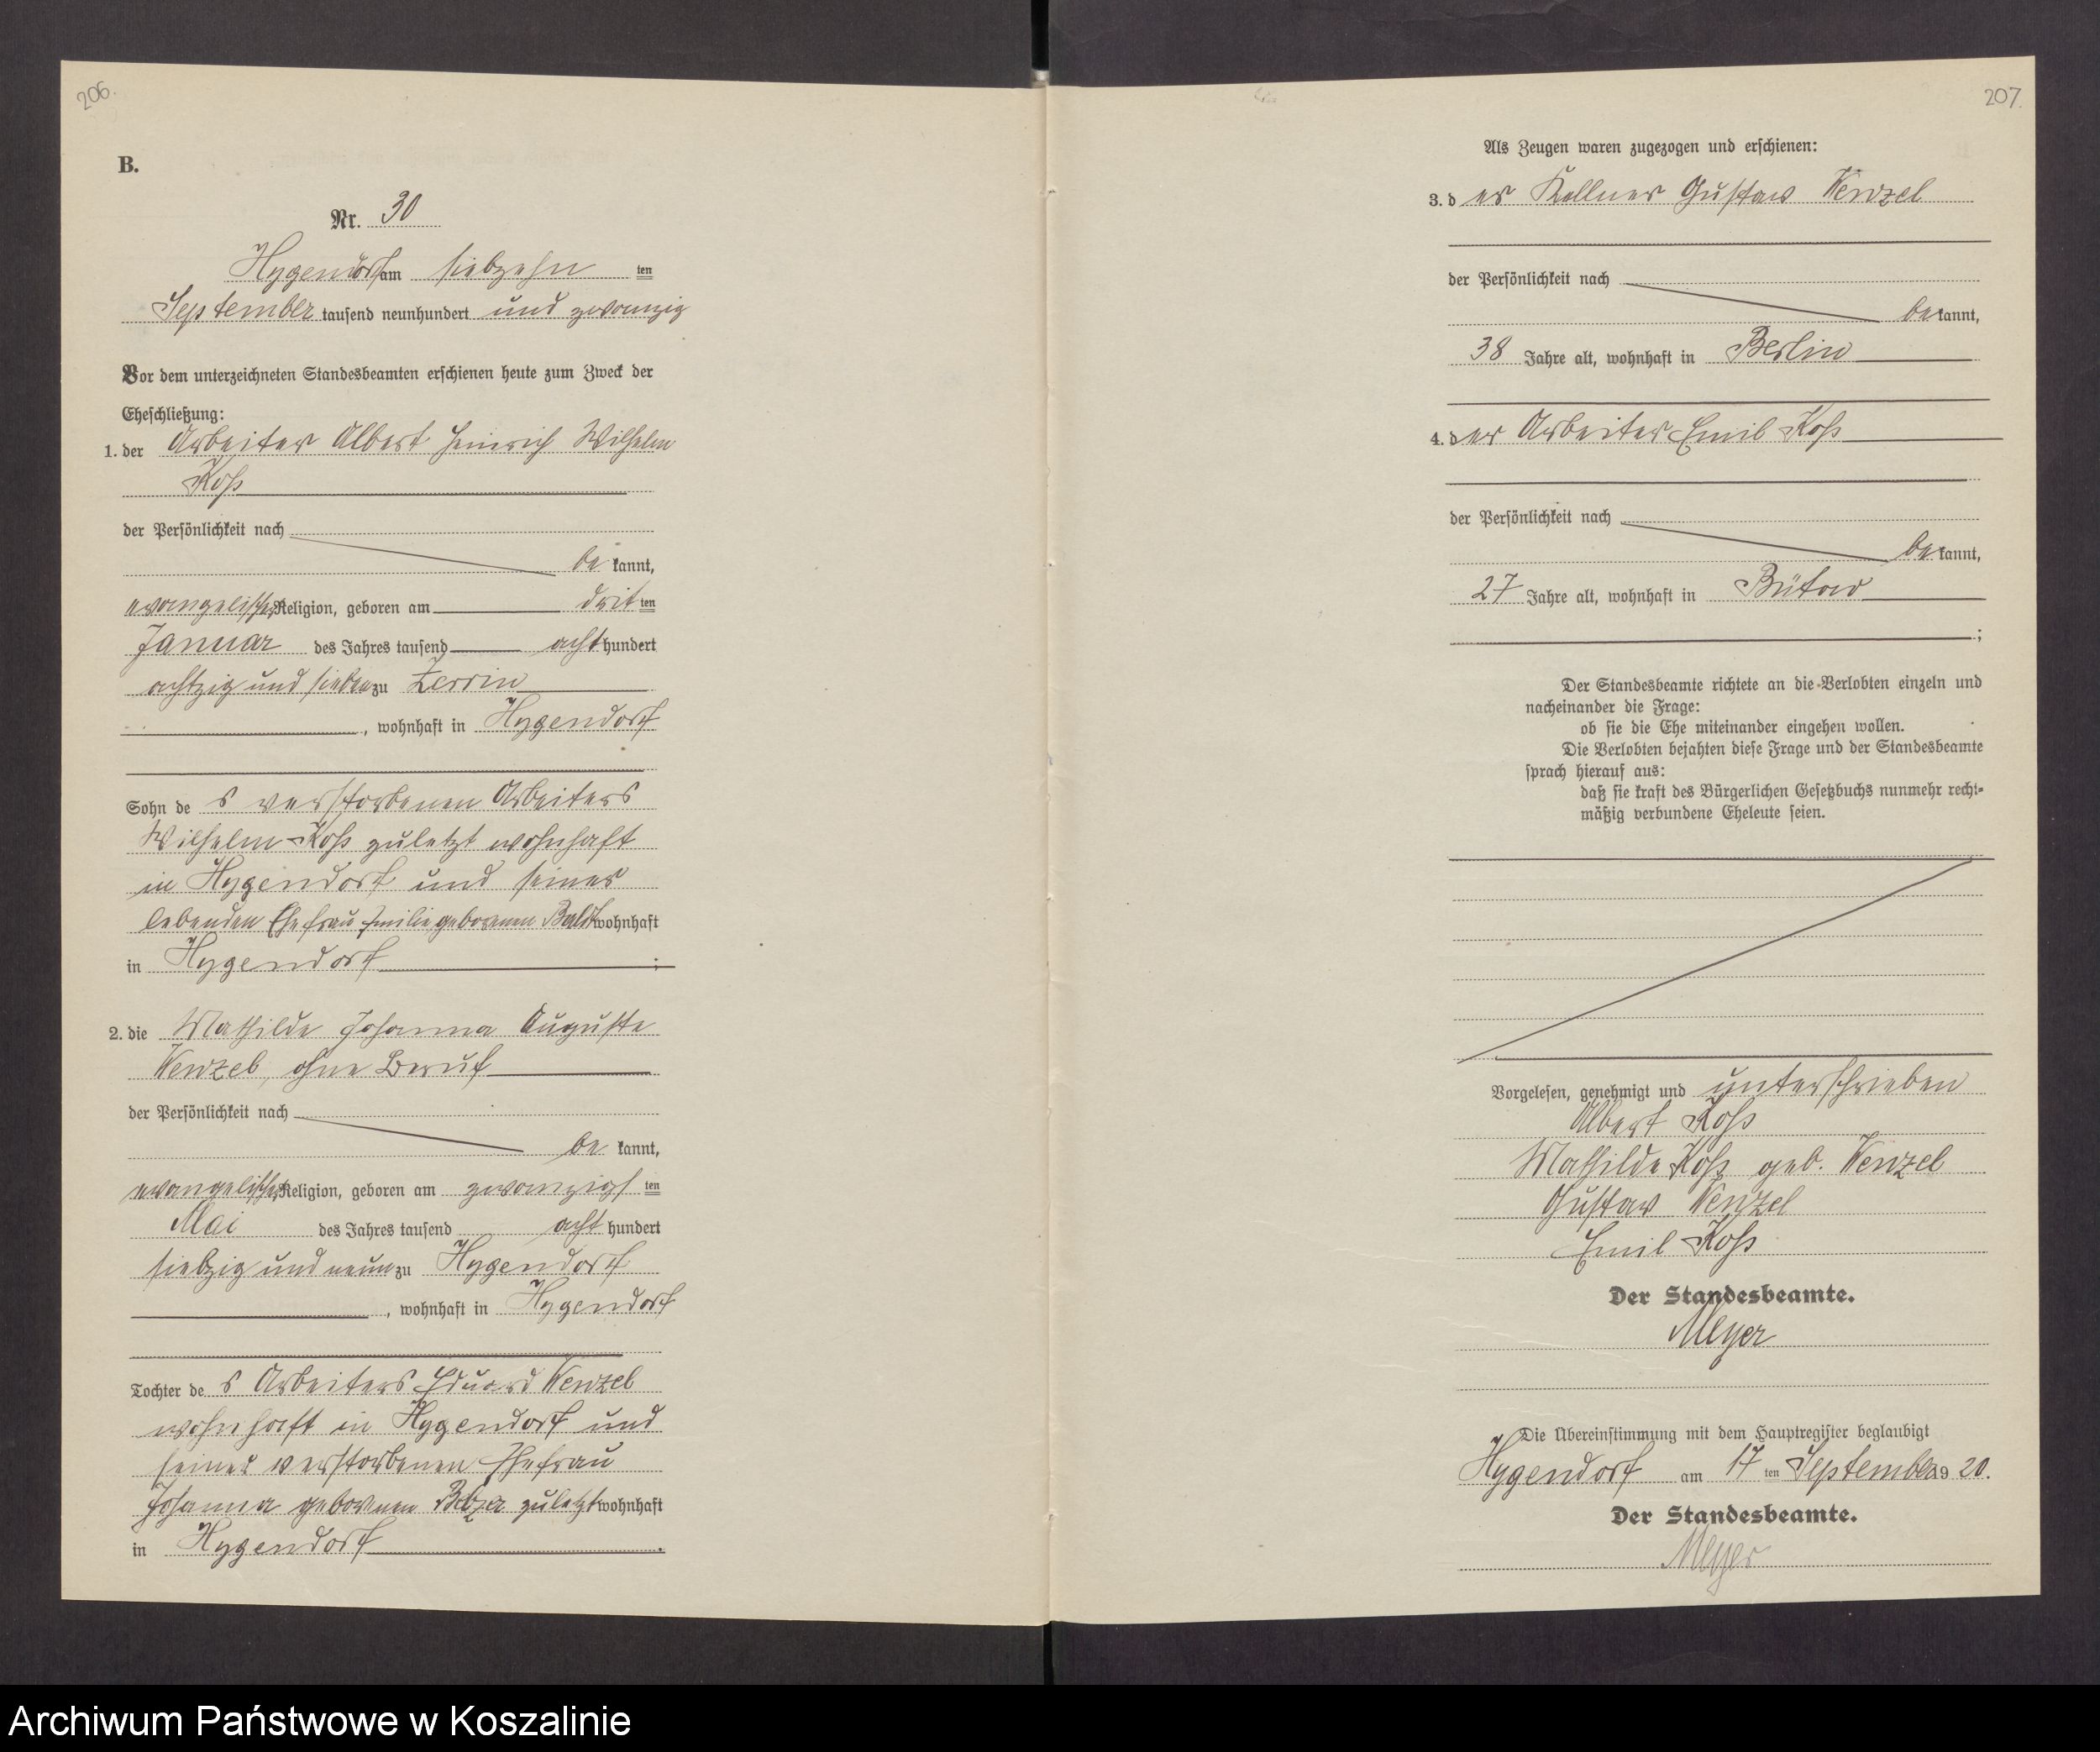 206.
B.
Nr. 30
Hygendorf am siebzehn ten
September tausend neunhundert und zwanzig
Vor dem unterzeichneten Standesbeamten erschienen heute zum Zweck der
Eheschließung:
1. der Arbeiter Albert Heinrich Wilhelm
Koß
der Persönlichkeit nach
be kannt,
evangelischer Religion, geboren am drit ten
Januar des Jahres tausend acht hundert
achtzig und sieben zu Zerrin
, wohnhaft in Hygendorf
Sohn de s verstorbenen Arbeiters
Wilhelm Koß zuletzt wohnhaft
in Hygendorf und seiner
lebenden Ehefrau Emilie geborenen wohnhaft
in Hygendorf ;
2. die Mathilde Johanna Auguste
Wenzel, ohne Beruf
der Persönlichkeit nach
be kannt,
evangelischer Religion, geboren am zwanzigs ten
Mai des Jahres tausend acht hundert
siebzig und neun zu Hygendorf
, wohnhaft in Hygendorf
Tochter de s Arbeiters Eduard Wenzel
wohnhaft in Hygendorf und
seiner verstorbenen Ehefrau
Johanna geborenen zuletzt wohnhaft
in Hygendorf .
207.
Als Zeugen waren zugezogen und erschienen:
3. d er Kellner Gustav Wenzel
der Persönlichkeit nach
be kannt,
38 Jahre alt, wohnhaft in Berlin
4. d er Arbeiter Emil Koß
der Persönlichkeit nach
be kannt,
27 Jahre alt, wohnhaft in Bütow
;
Der Standesbeamte richtete an die Verlobten einzeln und
nacheinander die Frage:
ob sie die Ehe miteinander eingehen wollen.
Die Verlobten bejahten diese Frage und der Standesbeamte
sprach hierauf aus:
daß sie kraft des Bürgerlichen Gesetzbuchs nunmehr recht-
mäßig verbundene Eheleute seien.
Vorgelesen, genehmigt und unterschrieben
Albert Koß
Mathilde Koß geb. Wenzel
Gustav Wenzel
Emil Koß
Der Standesbeamte.
Meyer
Die Übereinstimmung mit dem Hauptregister beglaubigt
Hygendorf am 17 ten September 19 20.
Der Standesbeamte.
Meyer
Archiwum Państwowe w Koszalinie